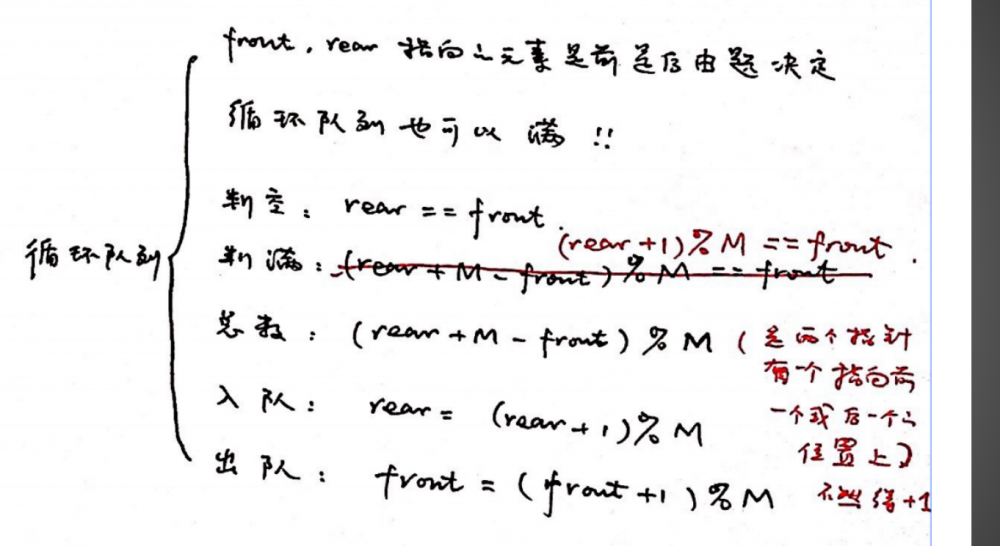 front, rear 指向的元素是前是后由题决定
循环队列也可以满!!
判空: rear == front.
(rear+1)%M == front.
循环队列
判满: (rear+M-front)%M == front
总数: (rear+M-front)%M (是两个指针
有一个指向前
入队: rear = (rear+1)%M
一个或后一个的
位置上)
出队: front = (front+1)%M
不然得+1